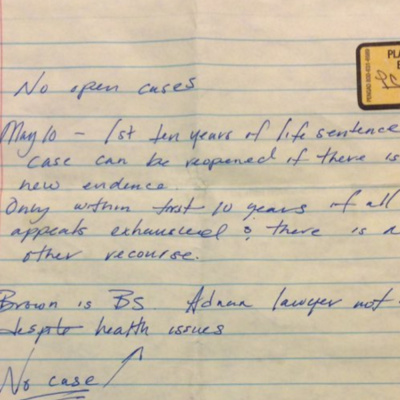 No open cases
PLA
May 10 - 1st ten years of life sentence
case can be reopened if there is
new evidence.
Only within first 10 years if all
appeals exhausted & there is
other recourse.
Brown is BS. Adnan lawyer not
despite health issues
No case